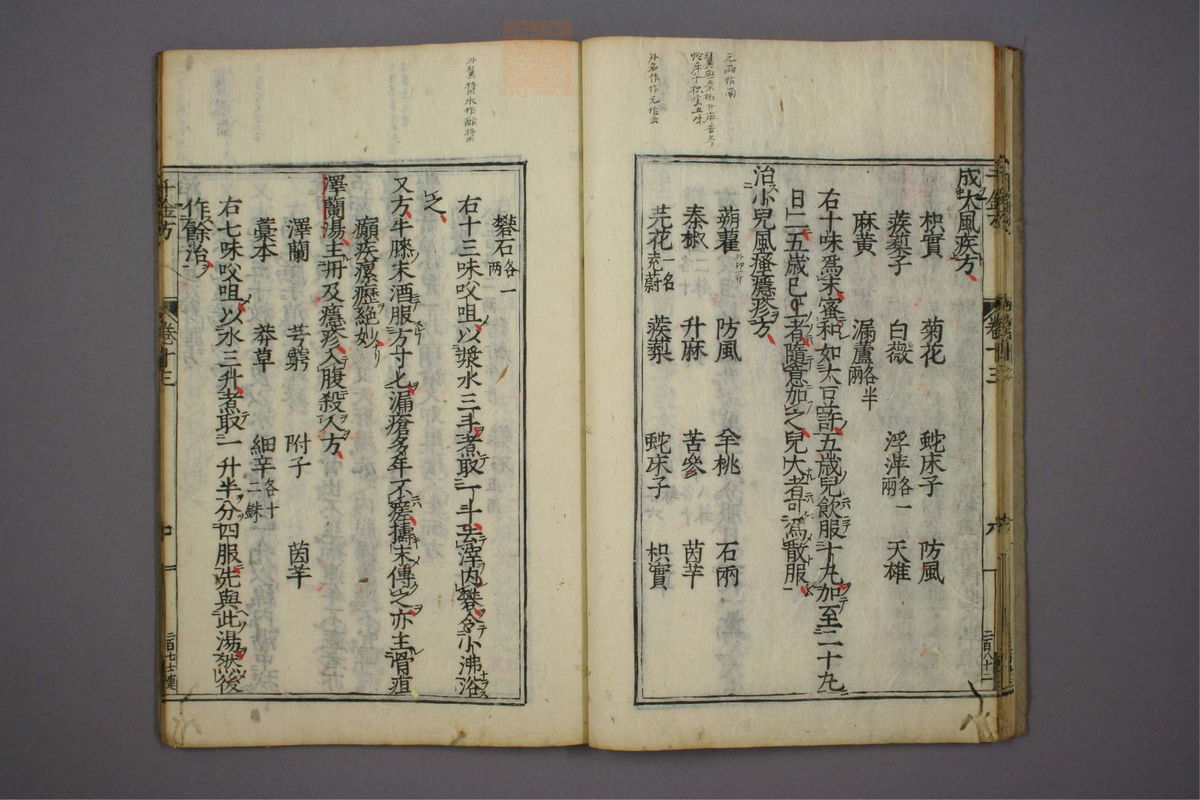 成大風疾方
枳實 菊花 蛇床子 防風
蒺䔧子 白薇 浮萍各一兩 天雄
麻黄 漏蘆各半兩
右十味爲末蜜和如大豆許五歳兒飲服十丸加至二十丸
日二五歳已上者隨意加之兒大者可爲散服
治小兒風瘙癮疹方
蒴藋 防風 羊桃 石兩
秦椒 升麻 苦參 茵芋
芫花一名茺蔚 蒺䔧 蛇床子 枳實
礬石各一兩
右十三味㕮咀以漿水三斗煮取一斗去滓内礬令小沸浴
之
又方牛膝末酒服方寸匕漏瘡多年不瘥擣末傅之亦主骨疽
癲疾瘰癧絶妙
澤蘭湯主丹及癮疹入腹殺人方
澤蘭 芎藭 附子 茵芋
藁本 莽草 細辛各十二銖
右七味㕮咀以水三升煮取一升半分四服先與此湯然後
作餘治
千金方 卷十三
元兩作南
外名作作元作云